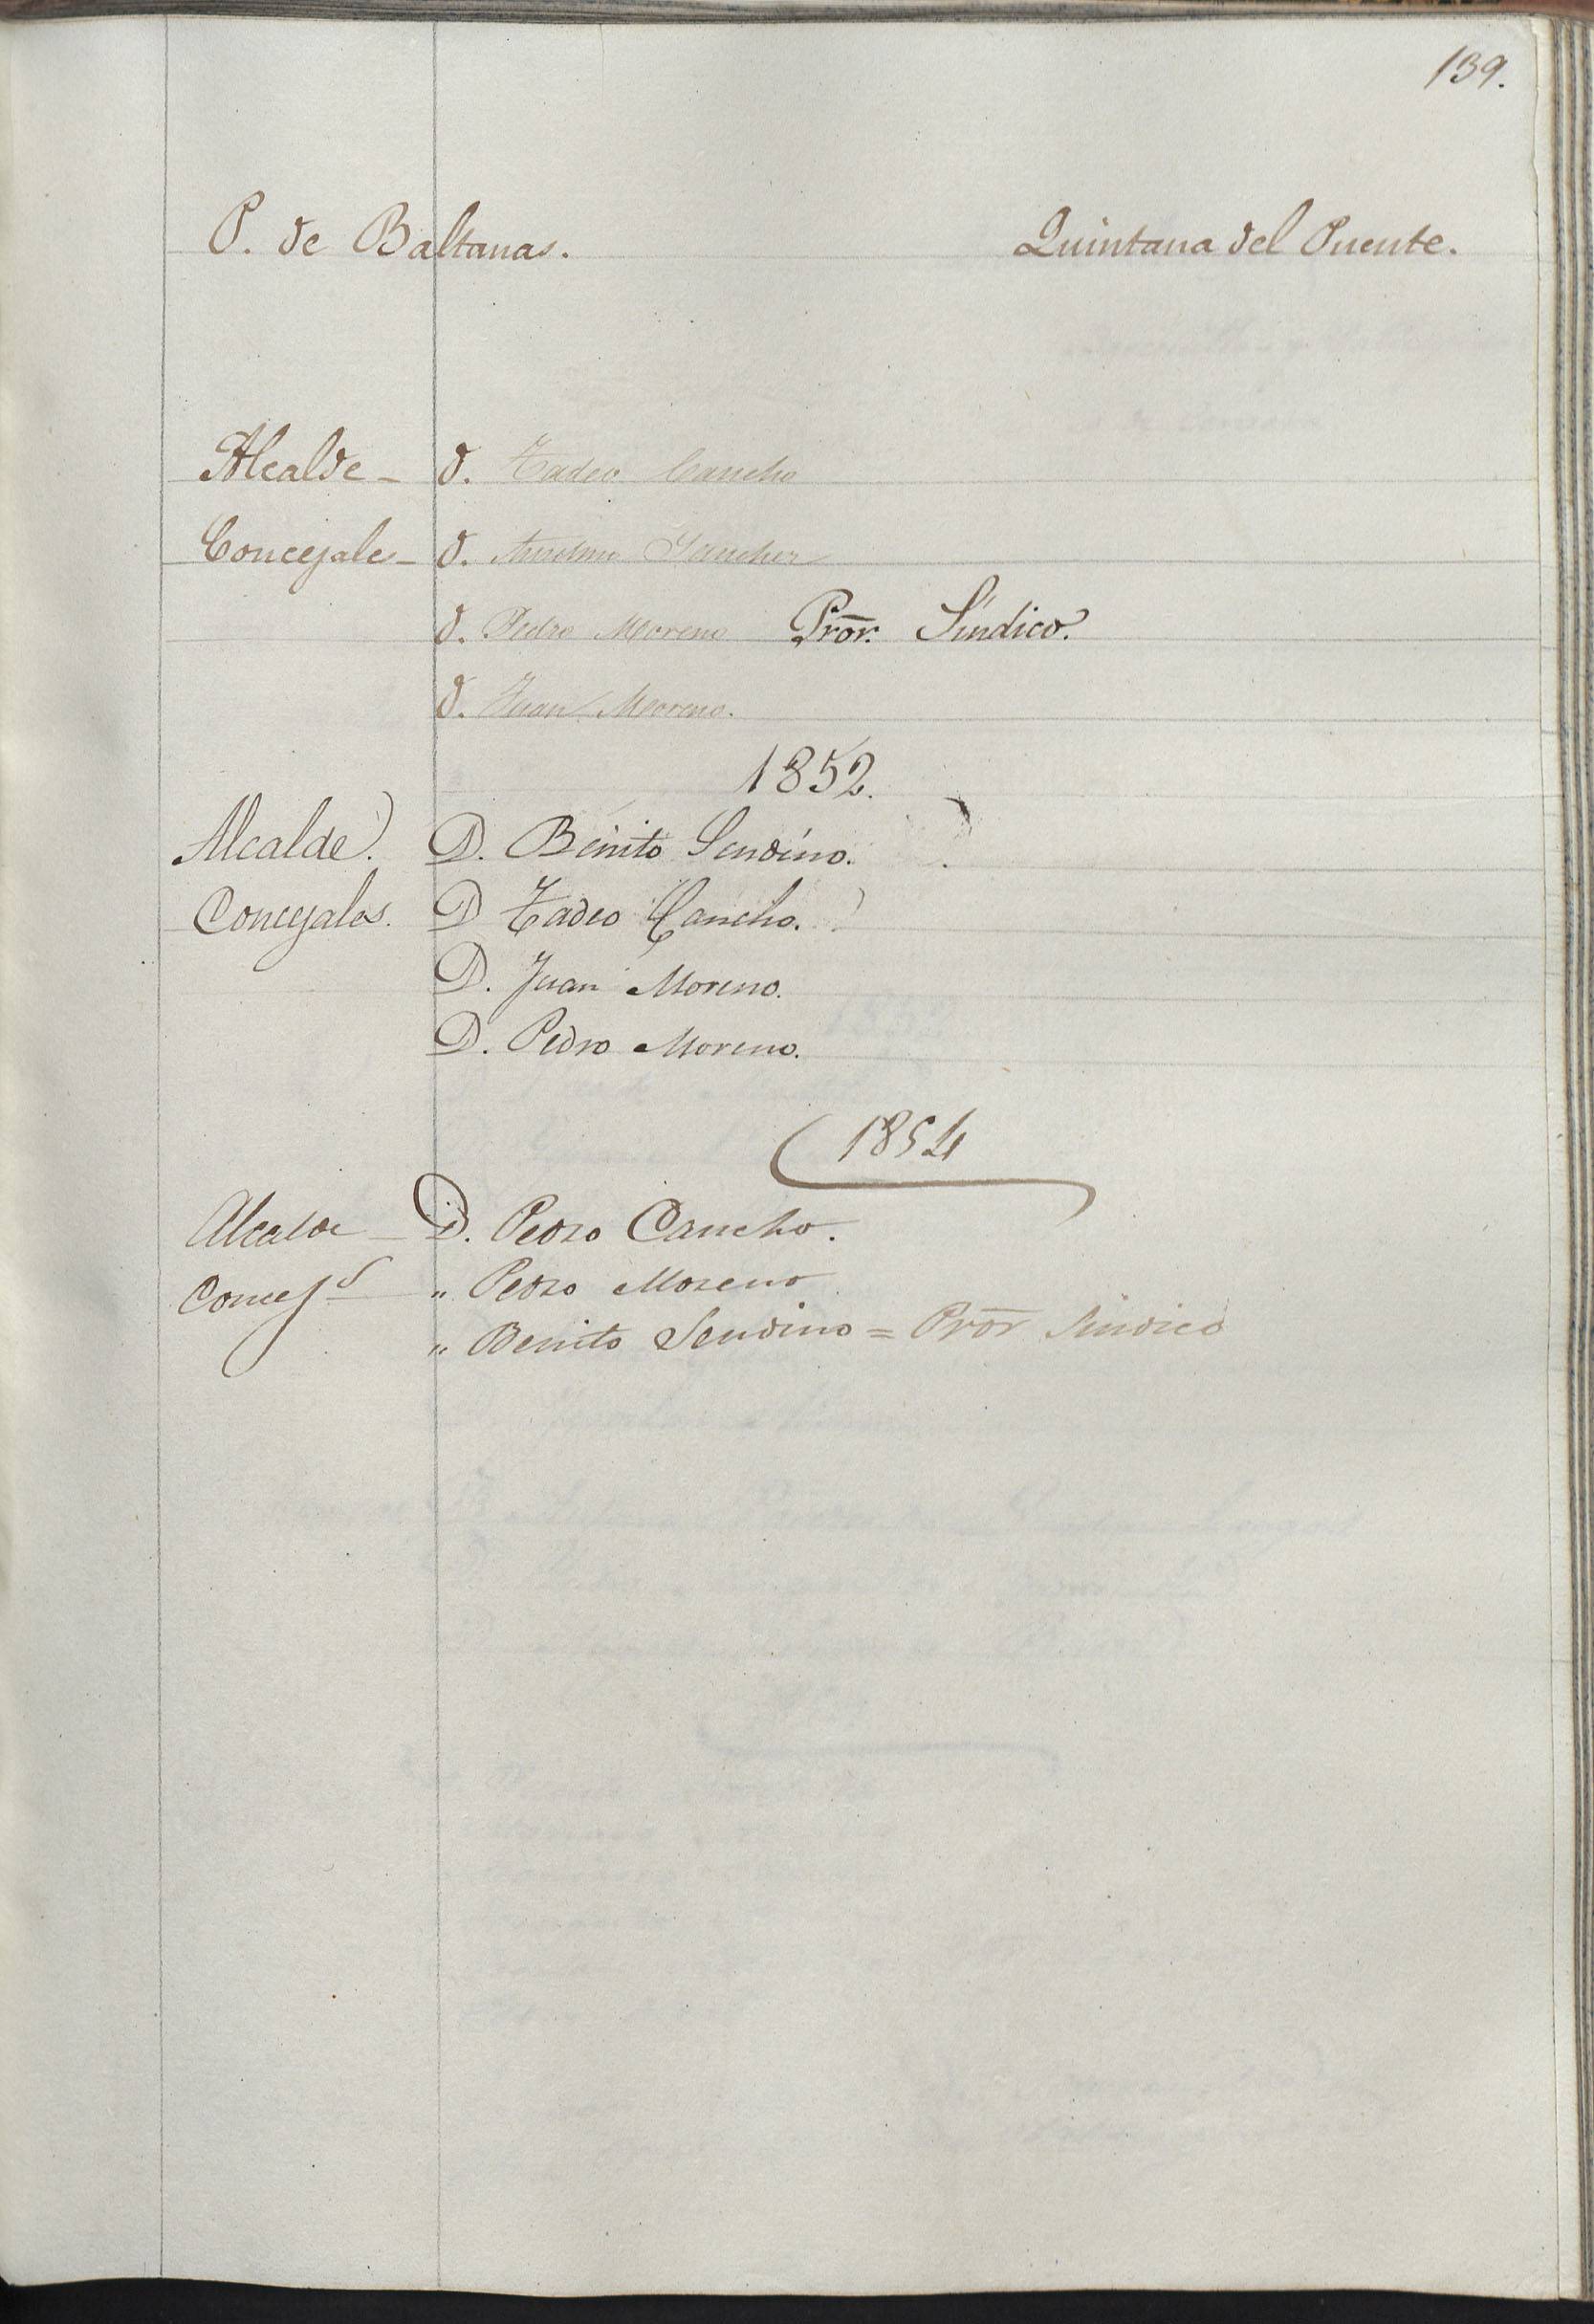 139.
P. de Baltanas. Quintana del Puente.
Alcalde - D. Tadeo Cancho
Concejale - D. Anselmo Sanchez
D. Pedro Moreno Prōr. Síndico.
D. Juan Moreno.
1852.
Alcalde. D. Benito Sendino.
Concejales. D Tadeo Cancho.
D. Juan Moreno.
D. Pedro Moreno.
1854
Alcalde - D. Pedro Cancho.
Concejs „ Pedro Moreno
„ Benito Sendino = Prōr Sindico